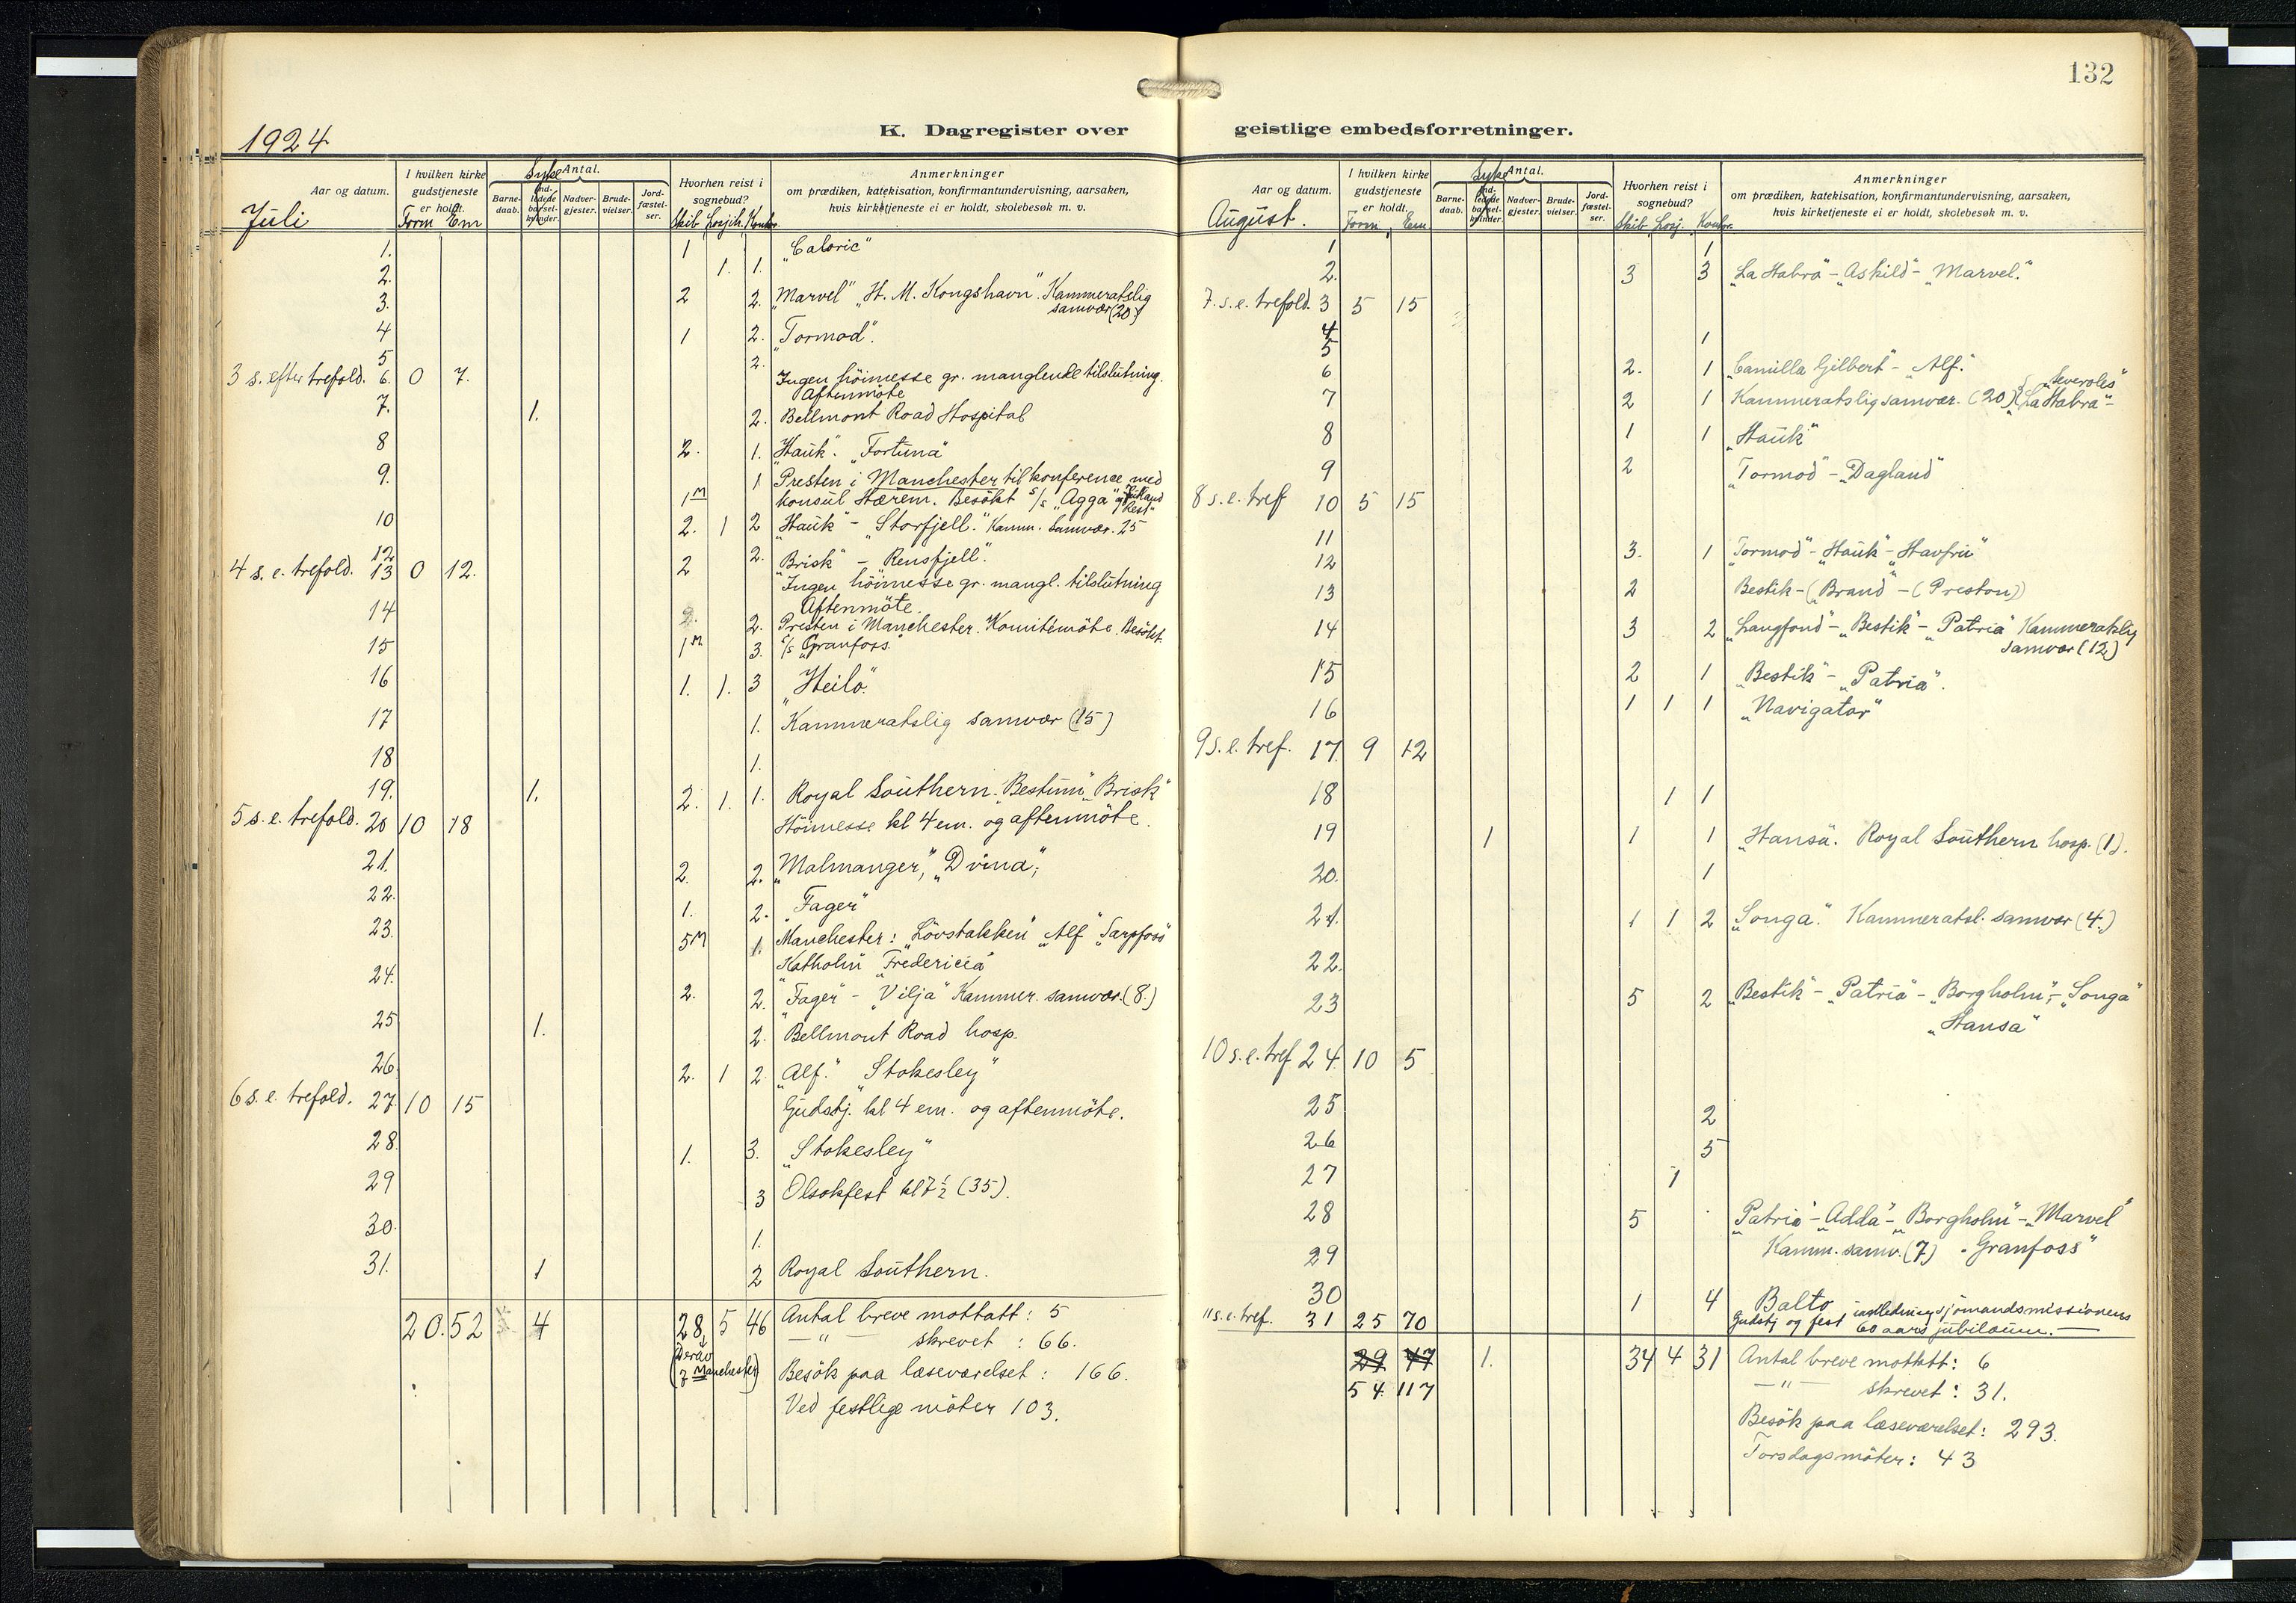 132
K. Dagregister over geistlige embedsforretninger.
1924
Aar og datum.
Juli
I hvilken kirke gudstjeneste er holdt.
Form Em
Syke
Antal.
Barne-daab.
Ind-ledede barsel-kvinder.
Nadver-gjester.
Brude-vielser.
Jord-fæstel-ser.
Hvorhen reist i sognebud?
Skib Losjih. Kontor.
Anmerkninger
om prædiken, katekisation, konfirmantundervisning, aarsaken,
hvis kirketjeneste ei er holdt, skolebesøk m. v.
1. 1 „Caloric"
2. 1. 1.
3. 2 2. „Marvel" „H. M. Kongshavn". Kammeratslig
samvær (20)
4 1 2. „Tormod".
5 2.
3 s. efter trefold. 6. 0 7. Ingen höimesse gr. manglende tilslutning.
Aftenmöte
7. 1. 2. Bellmont Road Hospital
8 2. 1. „Hauk". „Fortuna"
9. 1 Presten i Manchester til konference med
1M konsul Hærem. Besökt s/s „Agga"
10 2. 1 2 „Hauk" - „Storfjell." Kamm. Samvær. 25
12 2 2. „Brisk" - „Rensfjell".
4 s. e. trefold. 13 0 12. Ingen höimesse gr. mangl. tilslutning
Aftenmöte.
14 2. 2. Presten i Manchester. Komitémöte. Besökt
15 1M 3. s/s „Granfoss"
16 1. 1. 3 „Heilo".
17 1. Kammeratslig samvær (15)
18 1.
19. 1. 2. 1. 1. Royal Southern. „Bestum" „Brisk"
5 s. e. trefold. 20 10 18 Höimesse kl 4 em. og aftenmöte.
21. 2. 2. „Malmanger", „Dvina",
22. 1. 2. „Fager"
23. 5M 1. Manchester: „Lövstakken" „Alf" „Sarpfoss"
„Katholm" „Fredericia"
24. 2. 2. „Fager" - „Vilja" Kammer. samvær. (8.)
25 1. 2. Bellmont Road hosp.
26. 2. 1 2. „Alf." „Stokesley"
6 s. e. trefold. 27. 10 15 Gudstj. kl 4 em. og aftenmöte.
28. 1. 3. „Stokesley"
29 3 Olsokfest kl 7 1/2 (35).
30. 1.
31. 1 2 Royal Southern.
20. 52 4 28 5 46 Antal breve mottatt: 5
(Derav 7 Manchester)
— " — skrevet : 66.
Besök paa læseværelset : 166.
Ved festlige möter 103.
Aar og datum.
August.
I hvilken kirke gudstjeneste er holdt.
Form. Em.
Syke
Antal.
Barne-daab.
Ind-ledede barsel-kvinder.
Nadver-gjester.
Brude-vielser.
Jord-fæstel-ser.
Hvorhen reist i sognebud?
Skib Losj. Kontor.
Anmerkninger
om prædiken, katekisation, konfirmantundervisning, aarsaken,
hvis kirketjeneste ei er holdt, skolebesøk m. v.
1 1
2. 3 3 „La Habra" - „Askild" - „Marvel."
7. s. e. trefold. 3 5 15
4 1
5
6 2. 1 „Camilla Gilbert" - „Alf."
7 2 1 Kammeratslig samvær. (20) „La Habra" - „Severoles"
8 1 1 „Hauk"
9 2 „Tormod" - „Dagland"
8 s. e. tref 10 5 15
11
12 3. 1 „Tormod" - „Hauk" - „Havfru"
13 2 Bestik - („Brand" - (Preston)
14 3 2 „Langfond" - „Bestik" - „Patria" Kammeratslig
samvær (12)
15 2 1 „Bestik" - „Patria".
16 1 1 1 „Navigator"
9 s. e. tref. 17. 9 12
18 1 1
19 1 1 1 „Hansa". Royal Southern hosp. (1).
20. 1
21. 1 1 2 „Songa." Kammeratsl. samvær (4.)
22.
23 5 2 „Bestik" - „Patria" - „Borgholm", - „Songa"
„Hansa"
10 s. e. tref 24. 10 5
25 2
26 5
27 1
28 5 „Patria" - „Adda" - „Borgholm" - „Marvel"
Kamm. samv. (7) „Granfoss"
29
30 1 4 Balto
11 s. e. tref. 31 25 70 Gudstj og fest i anledning sjömandsmissionens
60 aars jubilæum. —
29 47 1. 34 4 31 Antal breve mottatt: 6
54 117 — " — skrevet: 31.
Besök paa læseværelset: 293.
Torsdagsmöter: 43